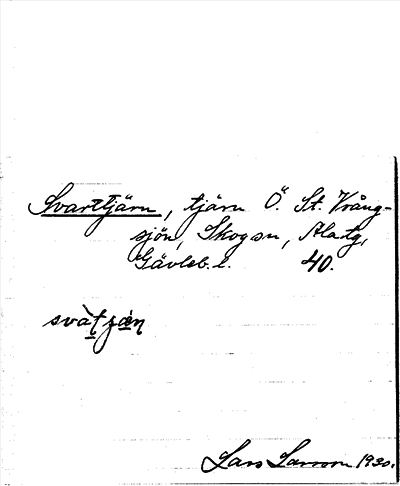 Svarttjärn, tjärn Ö. St. Vrång-
sjön, Skogsn, Aladg,
Gävleb. l. 40.
svàt̠jæ̠n
Lars Larsson 1930.